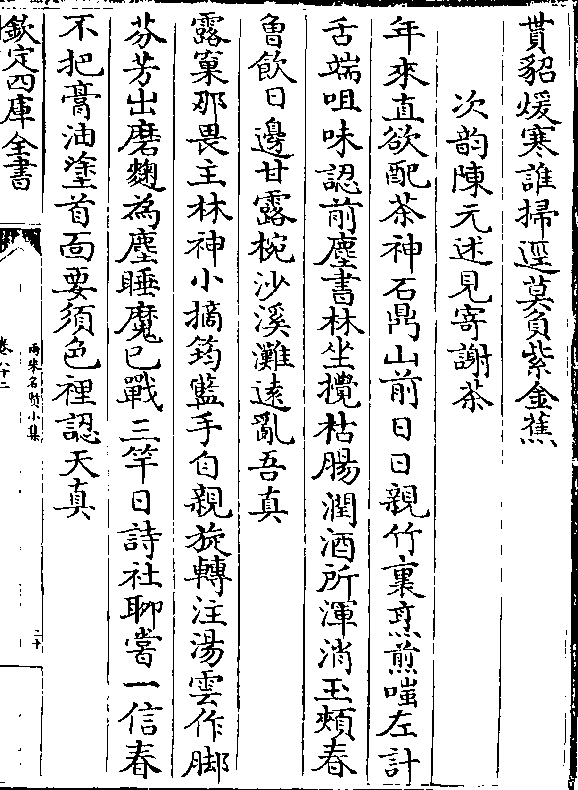 貰貂煖寒誰掃逕莫負紫金蕉
次韵陳元述見寄謝茶
年來直欲配茶神石鼎山前日日親竹裏烹煎嗤左計
舌端咀味認前塵書林坐攪枯腸潤酒所渾消玉頰春
魯飲日邊甘露椀沙溪灘遠亂吾真
露窠那畏主林神小摘筠籃手自親旋轉注湯雲作脚
芬芳出磨麴為塵睡魔已戰三竿日詩社聊嘗一信春
不把膏油塗首面要須色裡認天真
欽定四庫全書
兩宋名賢小集
二十